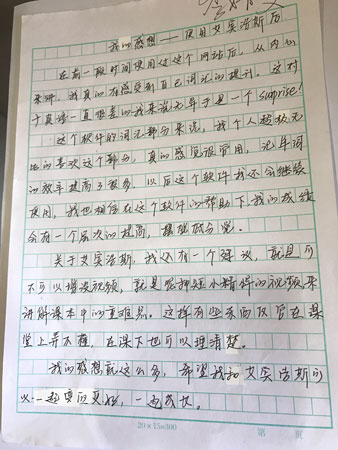 我的感想——使用艾宾浩斯后
在前一段时间使用过这个网站后,从内心
来讲,我真的有感受到自己词汇的提升,这对
十真 一直 的我来说无异于是一个surprise!
这个软件的词汇部分来说,我个人挺极无
比的喜欢这个部分,真的感觉很实用,记单词
的效率提高了很多,以后这个软件我还会继续
使用,我也相信在这个软件的帮助下我的成绩
会有一个层次的提高,摆脱低分。
关于艾宾浩斯,我还有一个建议,就是可
不可以增设视频,就是那种短小精悍的视频来
讲解课本中的重难点。这样有些东西及管在课
堂上弄不懂,在课下也可以理清楚。
我的感想就这么多,希望我和艾宾浩斯可
以一起变的更好,一起成长。
20×15=300
第 页